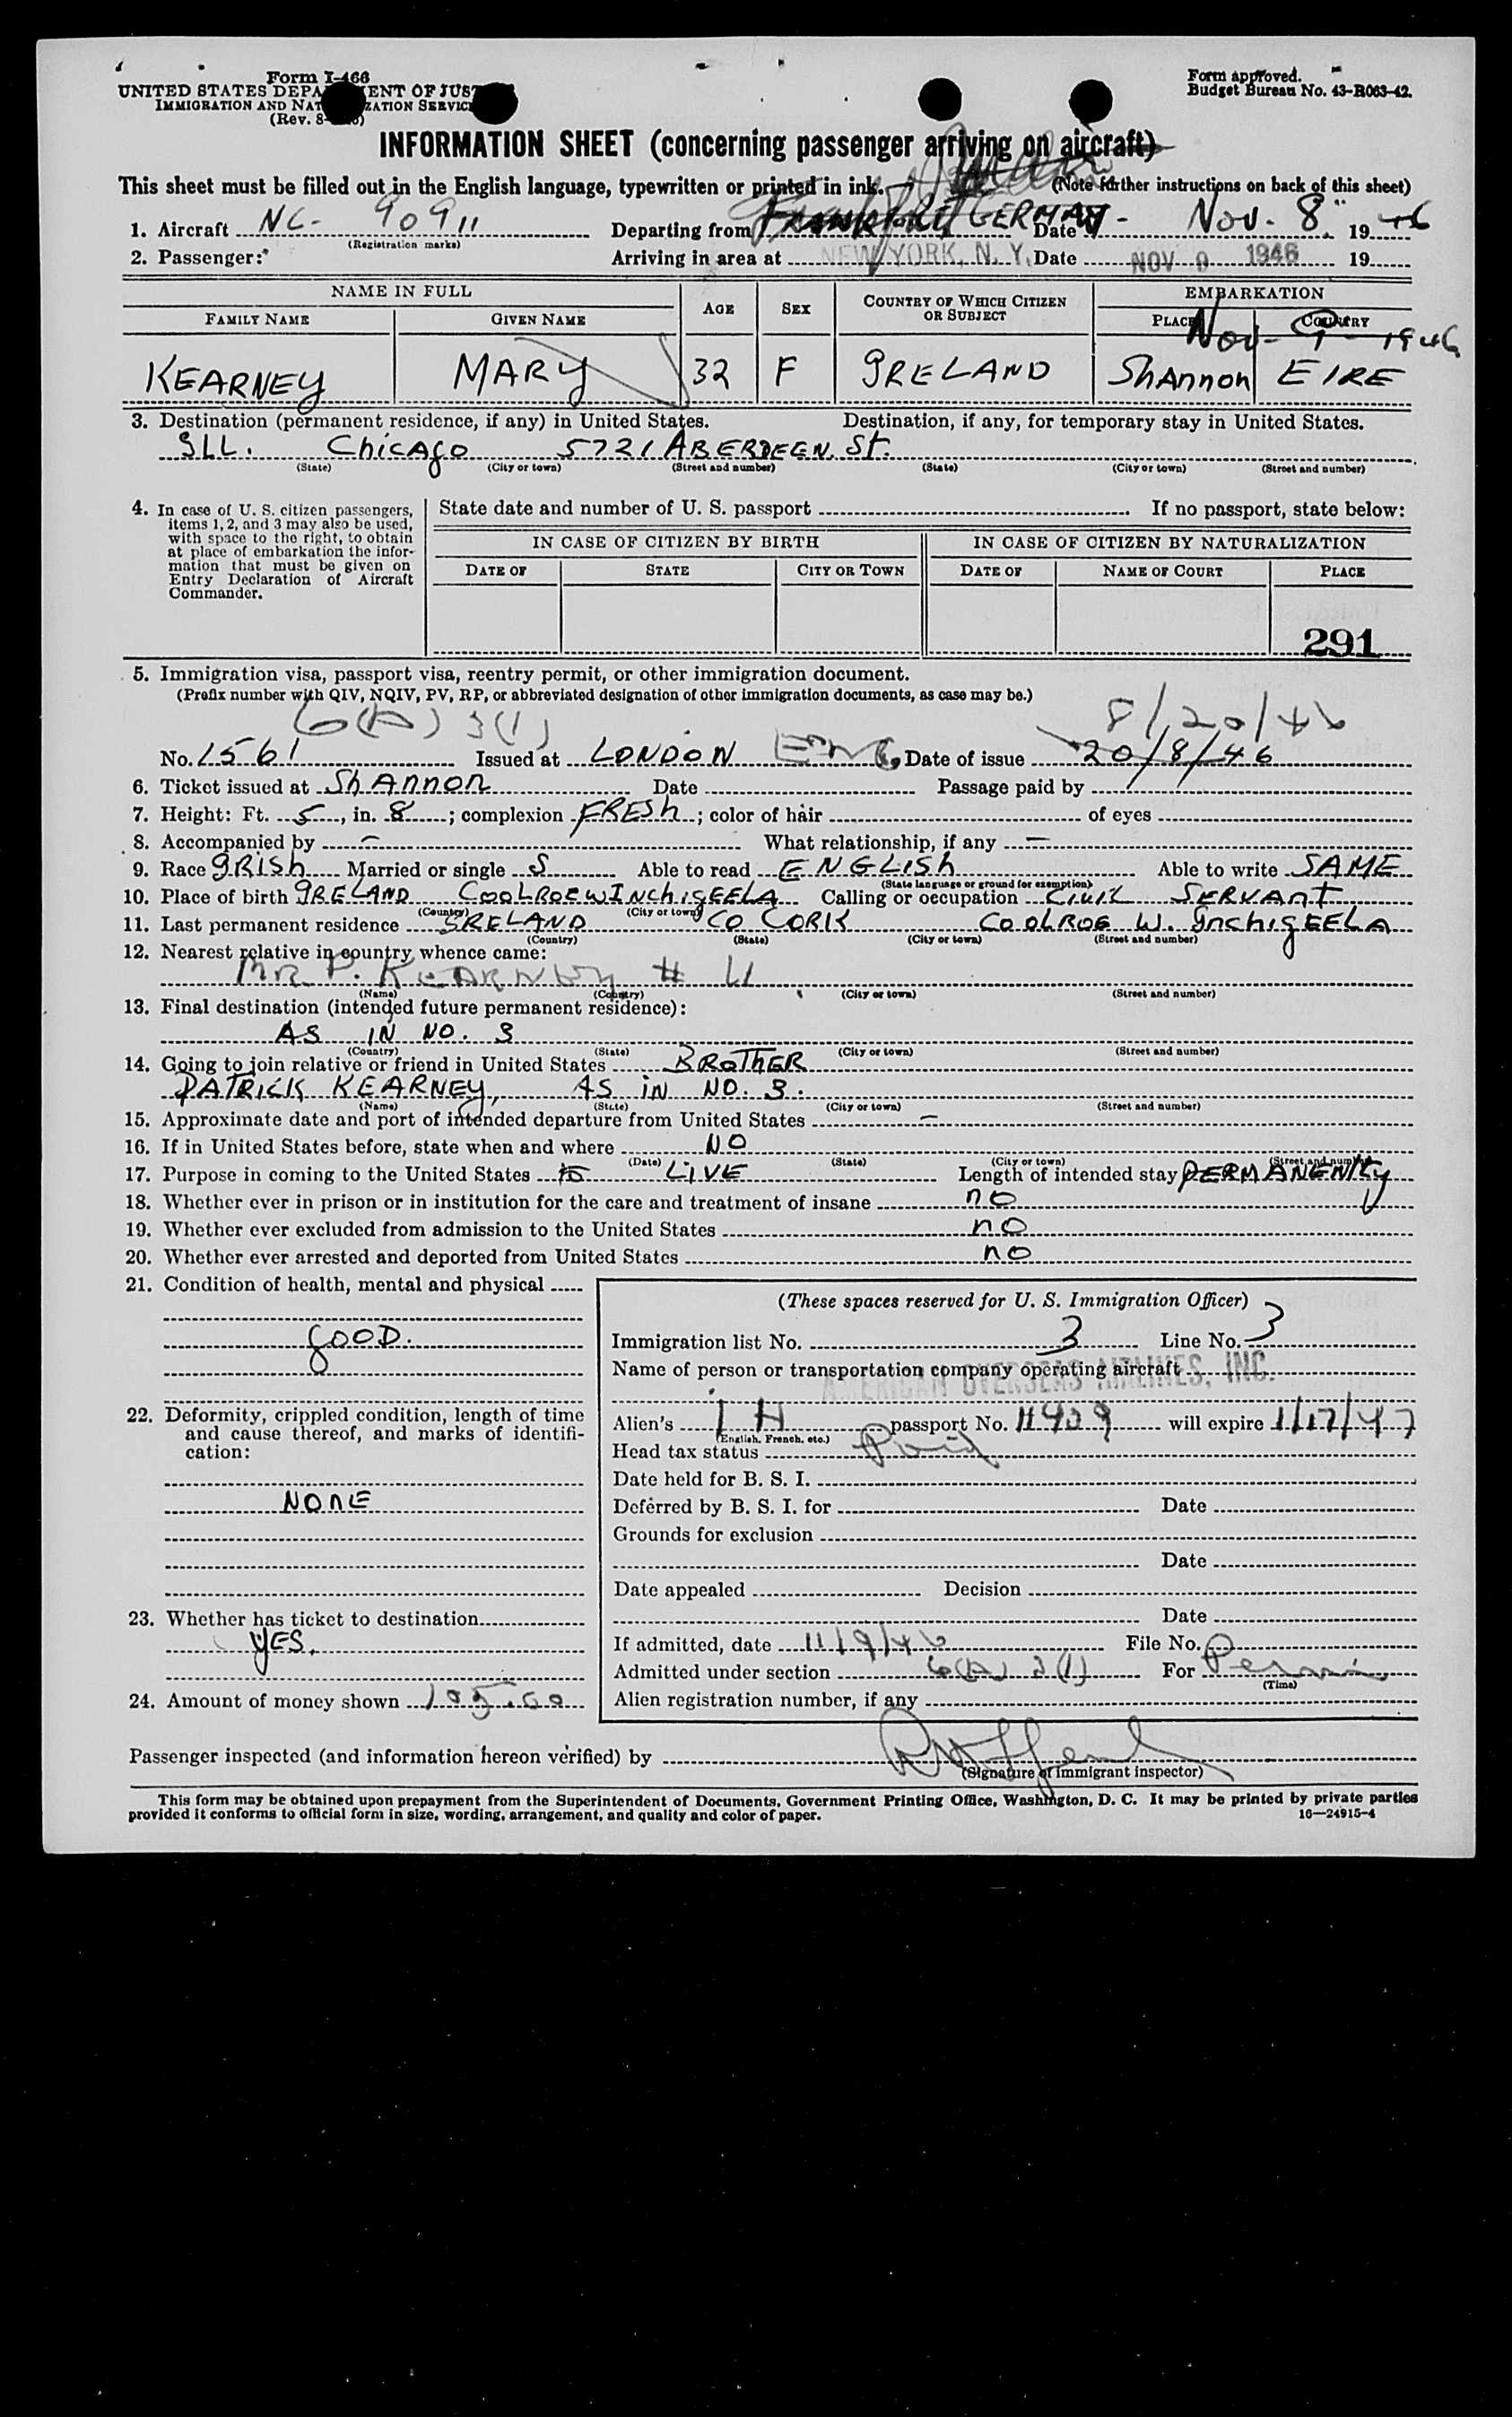 Form I-466
UNITED STATES DEPA ENT OF JUS
IMMIGRATION AND NAT ZATION SERVIC
(Rev. 8-
Form approved.
Budget Bureau No. 43-R063-42.
INFORMATION SHEET (concerning passenger arriving on aircraft)
This sheet must be filled out in the English language, typewritten or printed in ink. (Note further instructions on back of this sheet)
1. Aircraft NC- 90911 Departing from FRANKFURT GERMANY Date Nov. 8. 19 46
(Registration marks)
2. Passenger: Arriving in area at NEW YORK, N. Y. Date NOV 9 1946 19
NAME IN FULL AGE SEX COUNTRY OF WHICH CITIZEN OR SUBJECT EMBARKATION
FAMILY NAME GIVEN NAME PLACE COUNTRY
Nov- 9- 1946
KEARNEY MARY 32 F IRELAND ShAnnon EIRE
3. Destination (permanent residence, if any) in United States. Destination, if any, for temporary stay in United States.
ILL. ChicAgo 5721 ABERDEEN. St.
(State) (City or town) (Street and number) (State) (City or town) (Street and number)
4. In case of U. S. citizen passengers, items 1, 2, and 3 may also be used, with space to the right, to obtain at place of embarkation the information that must be given on Entry Declaration of Aircraft Commander.
State date and number of U. S. passport If no passport, state below:
IN CASE OF CITIZEN BY BIRTH IN CASE OF CITIZEN BY NATURALIZATION
DATE OF STATE CITY OR TOWN DATE OF NAME OF COURT PLACE
291
5. Immigration visa, passport visa, reentry permit, or other immigration document.
(Prefix number with QIV, NQIV, PV, RP, or abbreviated designation of other immigration documents, as case may be.)
6(A) 3(1) 8/20/46
No. 1561 Issued at LONDON ENG Date of issue 20/8/46
6. Ticket issued at ShAnnon Date Passage paid by
7. Height: Ft. 5, in. 8; complexion FRESh; color of hair of eyes
8. Accompanied by — What relationship, if any —
9. Race IRISh Married or single S Able to read ENGLISh Able to write SAME
(State language or ground for exemption)
10. Place of birth IRELAND COOLROEWINChIGEELA Calling or occupation CIVIL SERVANT
(Country) (City or town)
11. Last permanent residence IRELAND CO CORK COOLROE W. InchIGEELA
(Country) (State) (City or town) (Street and number)
12. Nearest relative in country whence came:
MR P. KEARNEY # 11
(Name) (Country) (City or town) (Street and number)
13. Final destination (intended future permanent residence):
AS IN NO. 3
(Country) (State) (City or town) (Street and number)
14. Going to join relative or friend in United States BROTHER
PATRICK KEARNEY, AS IN NO. 3.
(Name) (State) (City or town) (Street and number)
15. Approximate date and port of intended departure from United States —
16. If in United States before, state when and where NO
(Date) (State) (City or town) (Street and number)
17. Purpose in coming to the United States to LIVE Length of intended stay PERMANENTLY
18. Whether ever in prison or in institution for the care and treatment of insane no
19. Whether ever excluded from admission to the United States no
20. Whether ever arrested and deported from United States no
21. Condition of health, mental and physical
GOOD.
22. Deformity, crippled condition, length of time and cause thereof, and marks of identification:
NONE
23. Whether has ticket to destination
YES.
24. Amount of money shown 105.00
(These spaces reserved for U. S. Immigration Officer)
Immigration list No. 3 Line No. 3
Name of person or transportation company operating aircraft
AMERICAN OVERSEAS AIRLINES, INC.
Alien's passport No. 11409 will expire 1/17/47
(English, French, etc.)
Head tax status Paid
Date held for B. S. I.
Deferred by B. S. I. for Date
Grounds for exclusion
Date
Date appealed Decision
Date
If admitted, date 11/9/46 File No.
Admitted under section 6(A) 3(1) For
(Time)
Alien registration number, if any
Passenger inspected (and information hereon verified) by
(Signature of immigrant inspector)
This form may be obtained upon prepayment from the Superintendent of Documents, Government Printing Office, Washington, D. C. It may be printed by private parties
provided it conforms to official form in size, wording, arrangement, and quality and color of paper. 16—24915-4